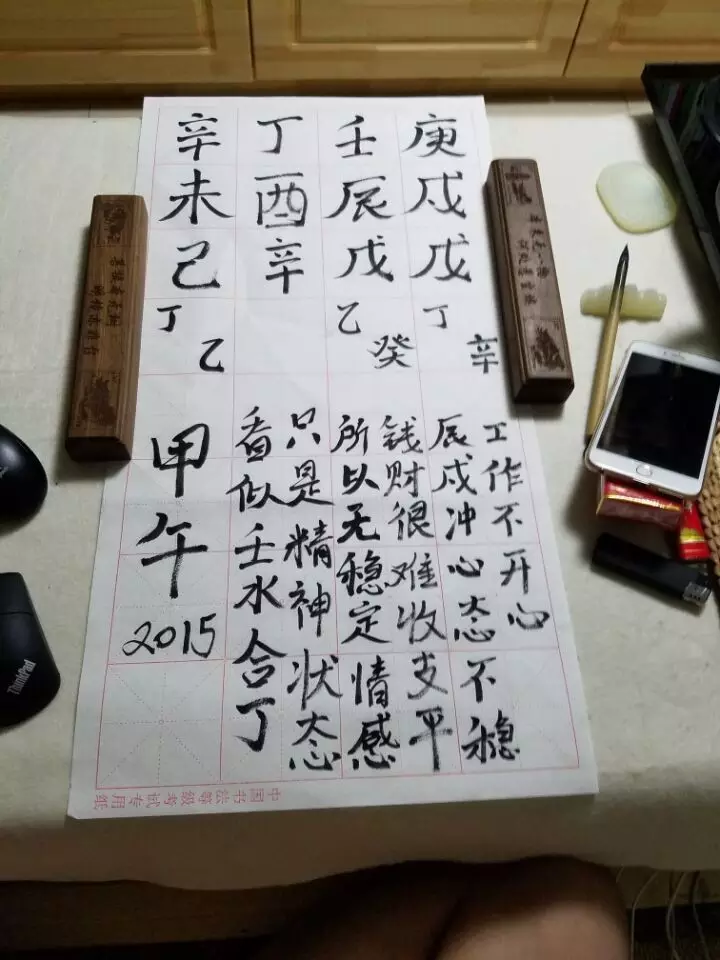 辛 丁 壬 庚
未 酉 辰 戌
己 辛 戊 戊
丁 乙 乙 癸 丁 辛
甲午
2015
看似壬水合丁
只是精神状态
所以无稳定情感
钱财很难收支平
辰戌冲心态不稳
工作不开心
中国书法等级考试专用纸
ThinkPad